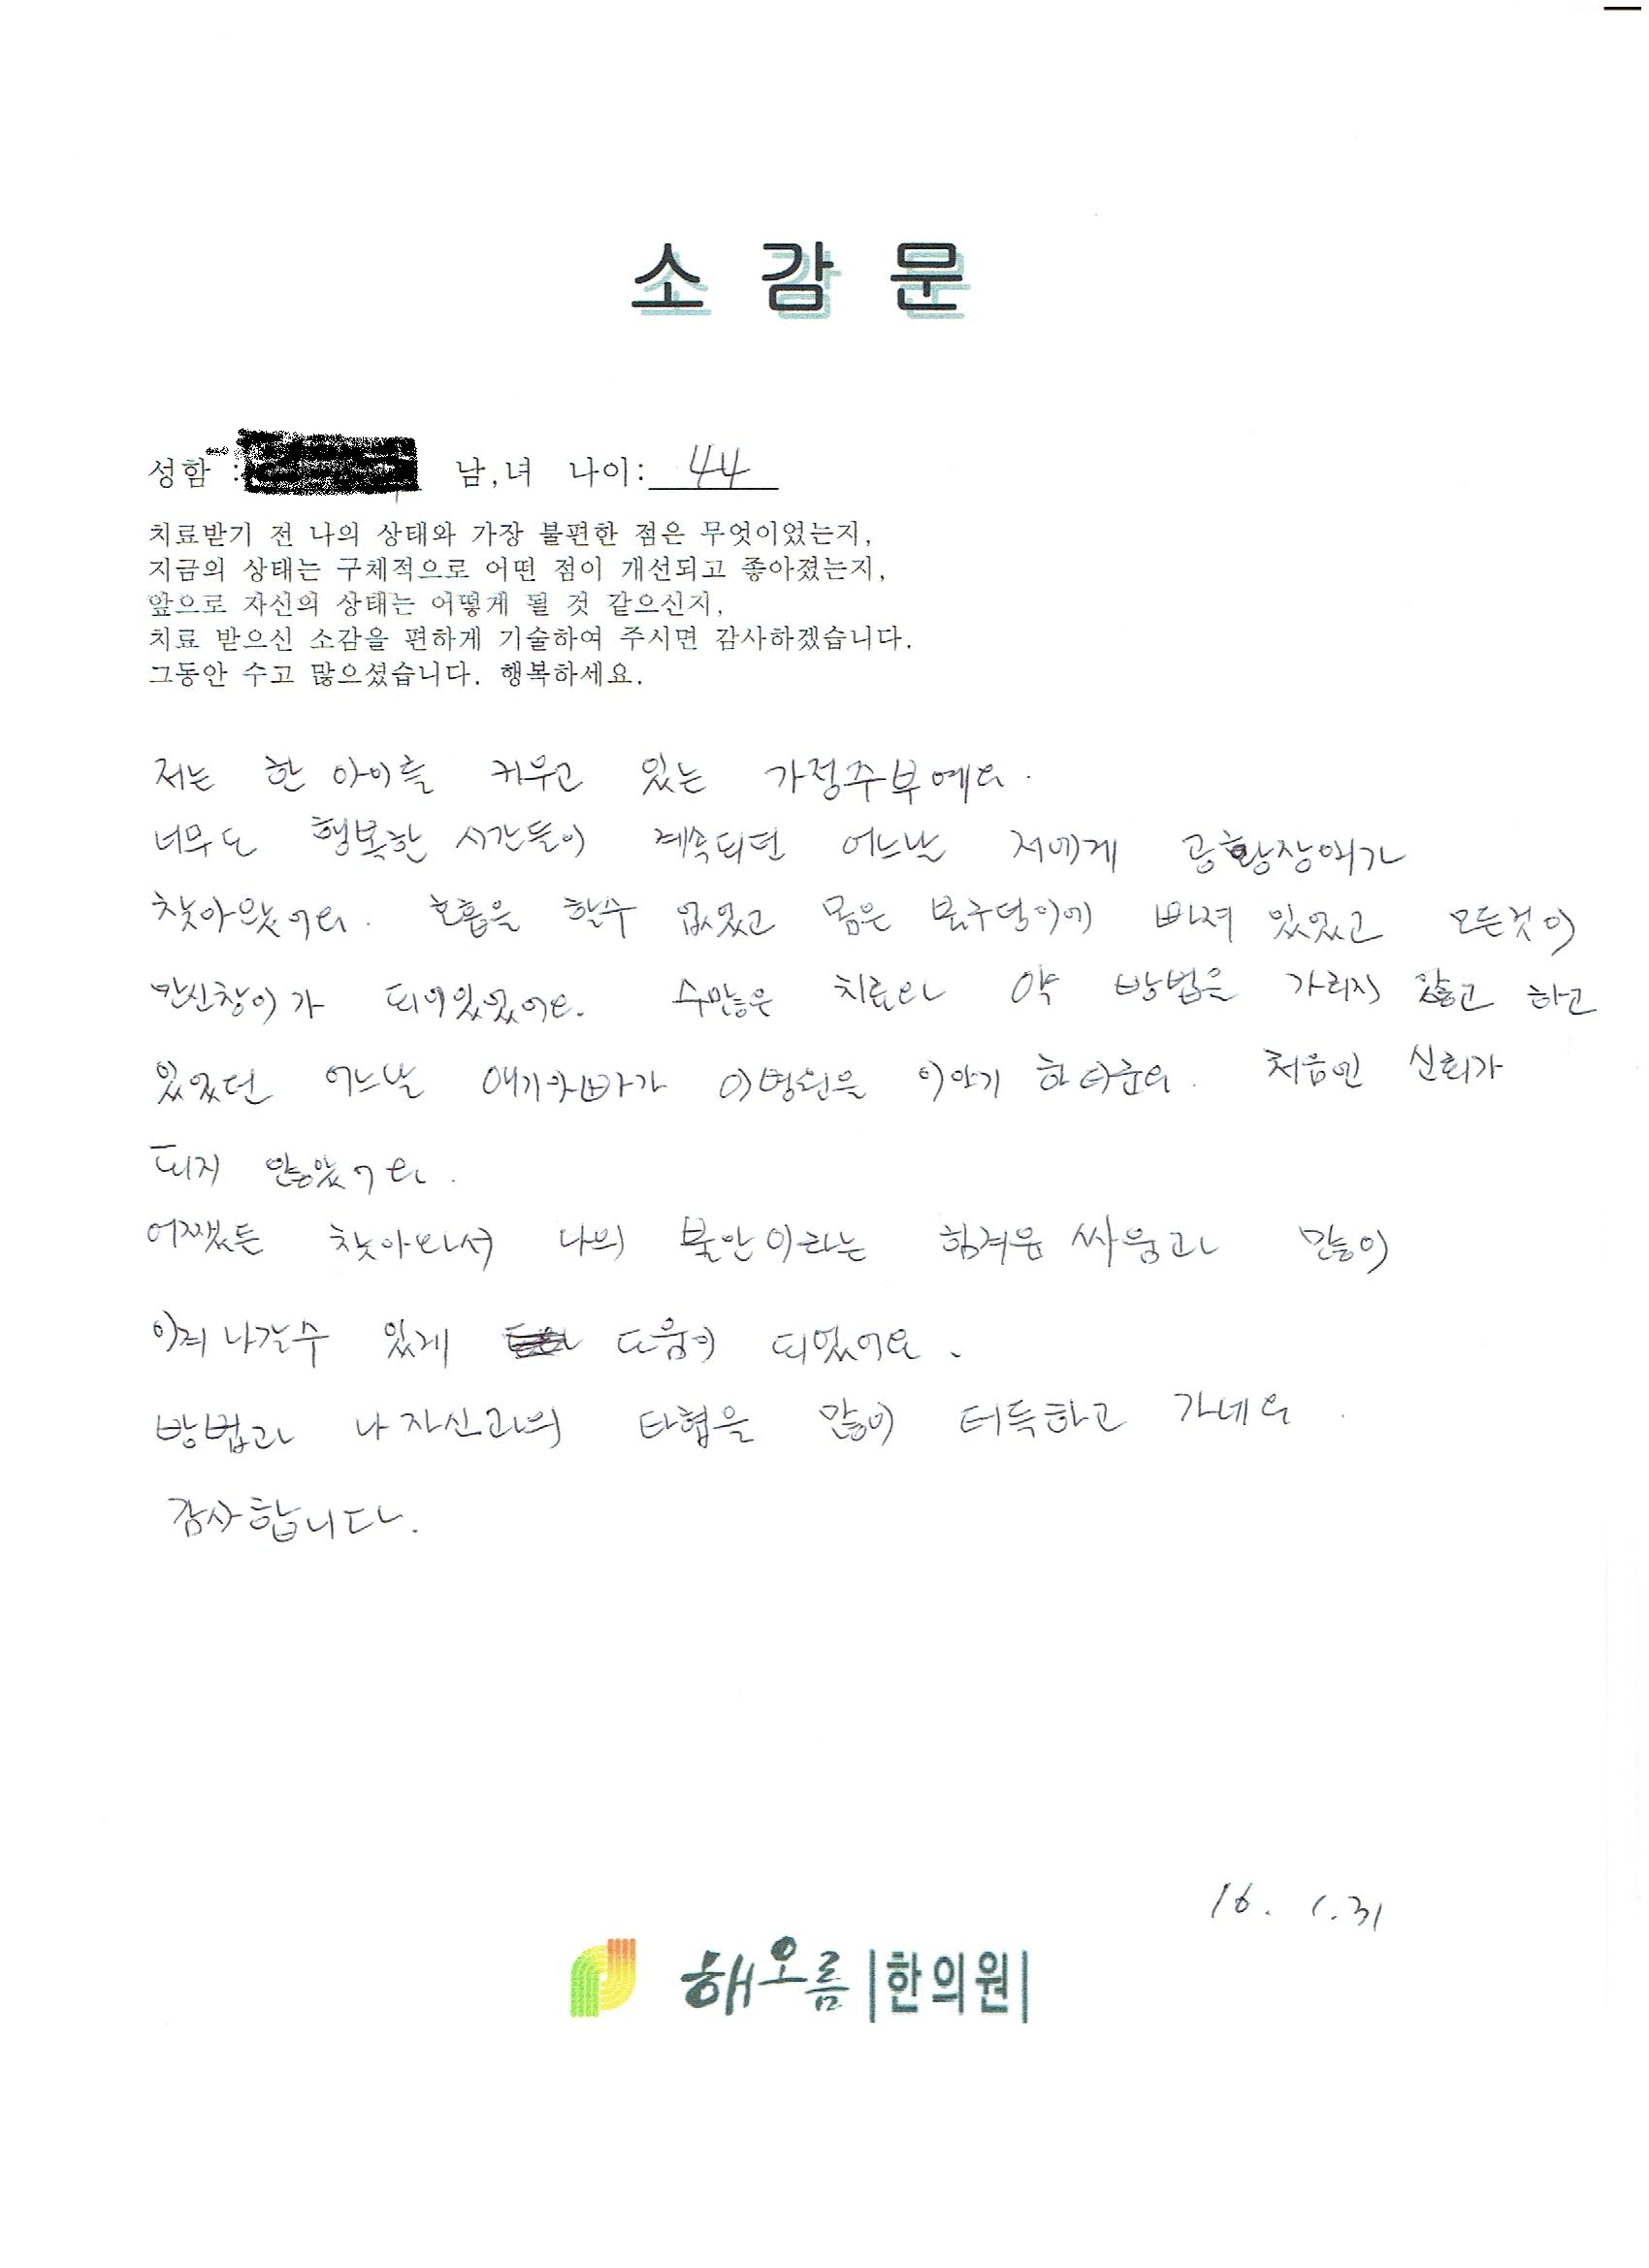 소 감 문
성함 : 남,녀 나이: 44
치료받기 전 나의 상태와 가장 불편한 점은 무엇이었는지,
지금의 상태는 구체적으로 어떤 점이 개선되고 좋아졌는지,
앞으로 자신의 상태는 어떻게 될 것 같으신지,
치료 받으신 소감을 편하게 기술하여 주시면 감사하겠습니다.
그동안 수고 많으셨습니다. 행복하세요.
저는 한 아이를 키우고 있는 가정주부예요.
너무도 행복한 시간들이 계속되던 어느날 저에게 공황장애가
찾아왔어요. 호흡을 할수 없었고 몸은 불구덩이에 빠져 있었고 모든것이
만신창이가 되어있었어요. 수많은 치료와 약 방법을 가리지 않고 하고
있었던 어느날 애기아빠가 이병원을 이야기 하더군요. 처음엔 신뢰가
되지 않았어요.
어쨌든 찾아와서 나의 불안이라는 힘겨운 싸움과 많이
이겨나갈수 있게 도움이 되었어요.
방법과 나 자신과의 타협을 많이 터득하고 가네요.
감사합니다.
16. 1.31
해오름 |한의원|